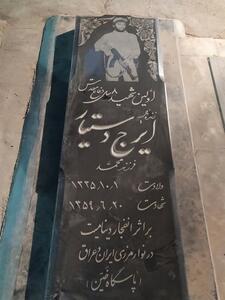 اولین شهید ۸ سال دفاع مقدس
ایرج دستیار
فرزند محمد
ولادت ۱۳۳۵،۱۰،۱
شهادت ۱۳۵۹،۶،۲۰
بر اثر انفجار دینامیت
در نوار مرزی ایران و عراق
(پاسگاه خین)